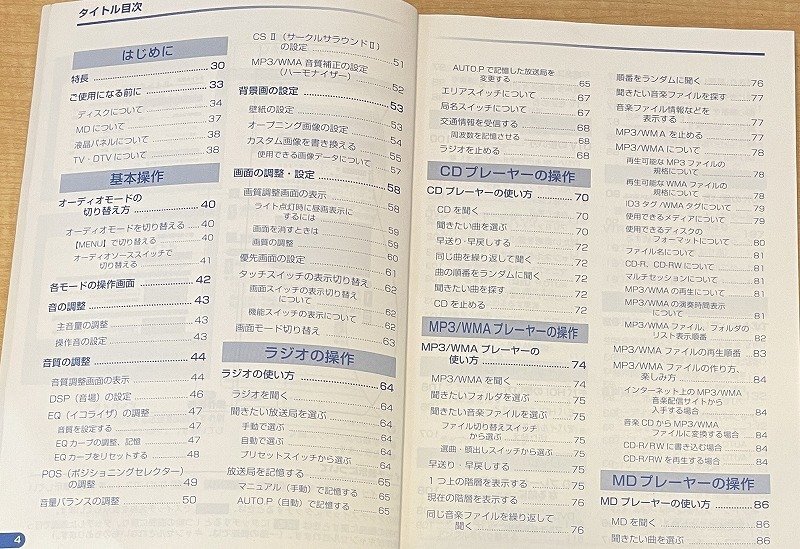 タイトル目次
はじめに
特長 30
ご使用になる前に 33
ディスクについて 34
MDについて 37
液晶パネルについて 38
TV・DTVについて 38
基本操作
オーディオモードの
切り替え方 40
オーディオモードを切り替える 40
【MENU】で切り替える 40
オーディオソーススイッチで
切り替える 41
各モードの操作画面 42
音の調整 43
主音量の調整 43
操作音の設定 43
音質の調整 44
音質調整画面の表示 44
DSP（音場）の設定 46
EQ（イコライザ）の調整 47
音質を設定する 47
EQカーブの調整、記憶 47
EQカーブをリセットする 48
POS（ポジショニングセレクター）
の調整 49
音量バランスの調整 50
4
CSⅡ（サークルサラウンドⅡ）
の設定 51
MP3/WMA 音質補正の設定
（ハーモナイザー） 52
背景画の設定 53
壁紙の設定 53
オープニング画像の設定 54
カスタム画像を書き換える 55
使用できる画像データについて 57
画面の調整・設定 58
画質調整画面の表示 58
ライト点灯時に昼画表示に
するには 59
画面を消すときは 59
画質の調整 60
優先画面の設定 61
タッチスイッチの表示切り替え 62
画面スイッチの表示切り替え
について 62
機能スイッチの表示について 62
画面モード切り替え 63
ラジオの操作
ラジオの使い方 64
ラジオを聞く 64
聞きたい放送局を選ぶ 64
手動で選ぶ 64
自動で選ぶ 64
プリセットスイッチから選ぶ 64
放送局を記憶する 65
マニュアル（手動）で記憶する 65
AUTO.P（自動）で記憶する 65
AUTO.Pで記憶した放送局を
変更する 65
エリアスイッチについて 67
局名スイッチについて 67
交通情報を受信する 68
周波数を記憶させる 68
ラジオを止める 68
CDプレーヤーの操作
CDプレーヤーの使い方 70
CDを聞く 70
聞きたい曲を選ぶ 70
早送り・早戻しする 72
同じ曲を繰り返して聞く 72
曲の順番をランダムに聞く 72
聞きたい曲を探す 72
CDを止める 72
MP3/WMAプレーヤーの操作
MP3/WMAプレーヤーの
使い方 74
MP3/WMAを聞く 74
聞きたいフォルダを選ぶ 75
聞きたい音楽ファイルを選ぶ 75
ファイル切り替えスイッチ
から選ぶ 75
選曲・頭出しスイッチから選ぶ 75
早送り・早戻しする 75
1つ上の階層を表示する 75
現在の階層を表示する 76
同じ音楽ファイルを繰り返して
聞く 76
順番をランダムに聞く 76
聞きたい音楽ファイルを探す 77
音楽ファイル情報などを
表示する 77
MP3/WMAを止める 77
MP3/WMAについて 78
再生可能なMP3ファイルの
規格について 78
再生可能なWMAファイルの
規格について 78
ID3タグ/WMAタグについて 79
使用できるメディアについて 79
使用できるディスクの
フォーマットについて 80
ファイル名について 81
CD-R、CD-RWについて 81
マルチセッションについて 81
MP3/WMAの再生について 81
MP3/WMAの演奏時間表示
について 81
MP3/WMAファイル、フォルダの
リスト表示順番 82
MP3/WMAファイルの再生順番 83
MP3/WMAファイルの作り方、
楽しみ方 84
インターネット上のMP3/WMA
音楽配信サイトから
入手する場合 84
音楽CDからMP3/WMA
ファイルに変換する場合 84
CD-R/RWに書き込む場合 84
CD-R/RWを再生する場合 84
MDプレーヤーの操作
MDプレーヤーの使い方 86
MDを聞く 86
聞きたい曲を選ぶ 86